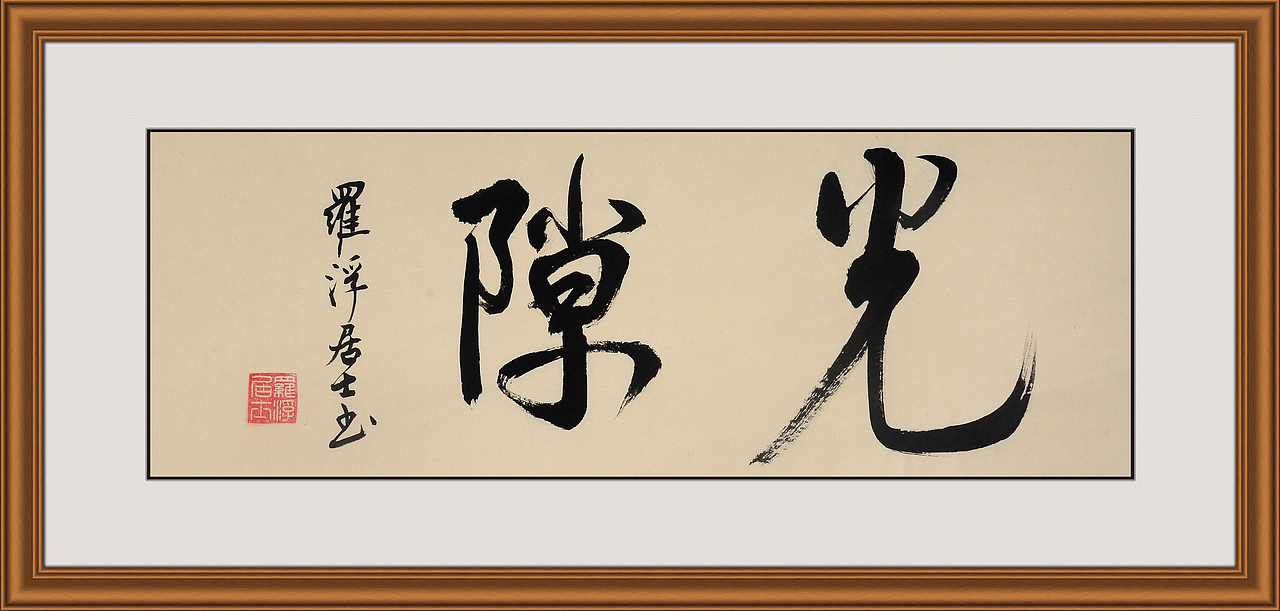 光隙
羅浮居士书
羅浮居士